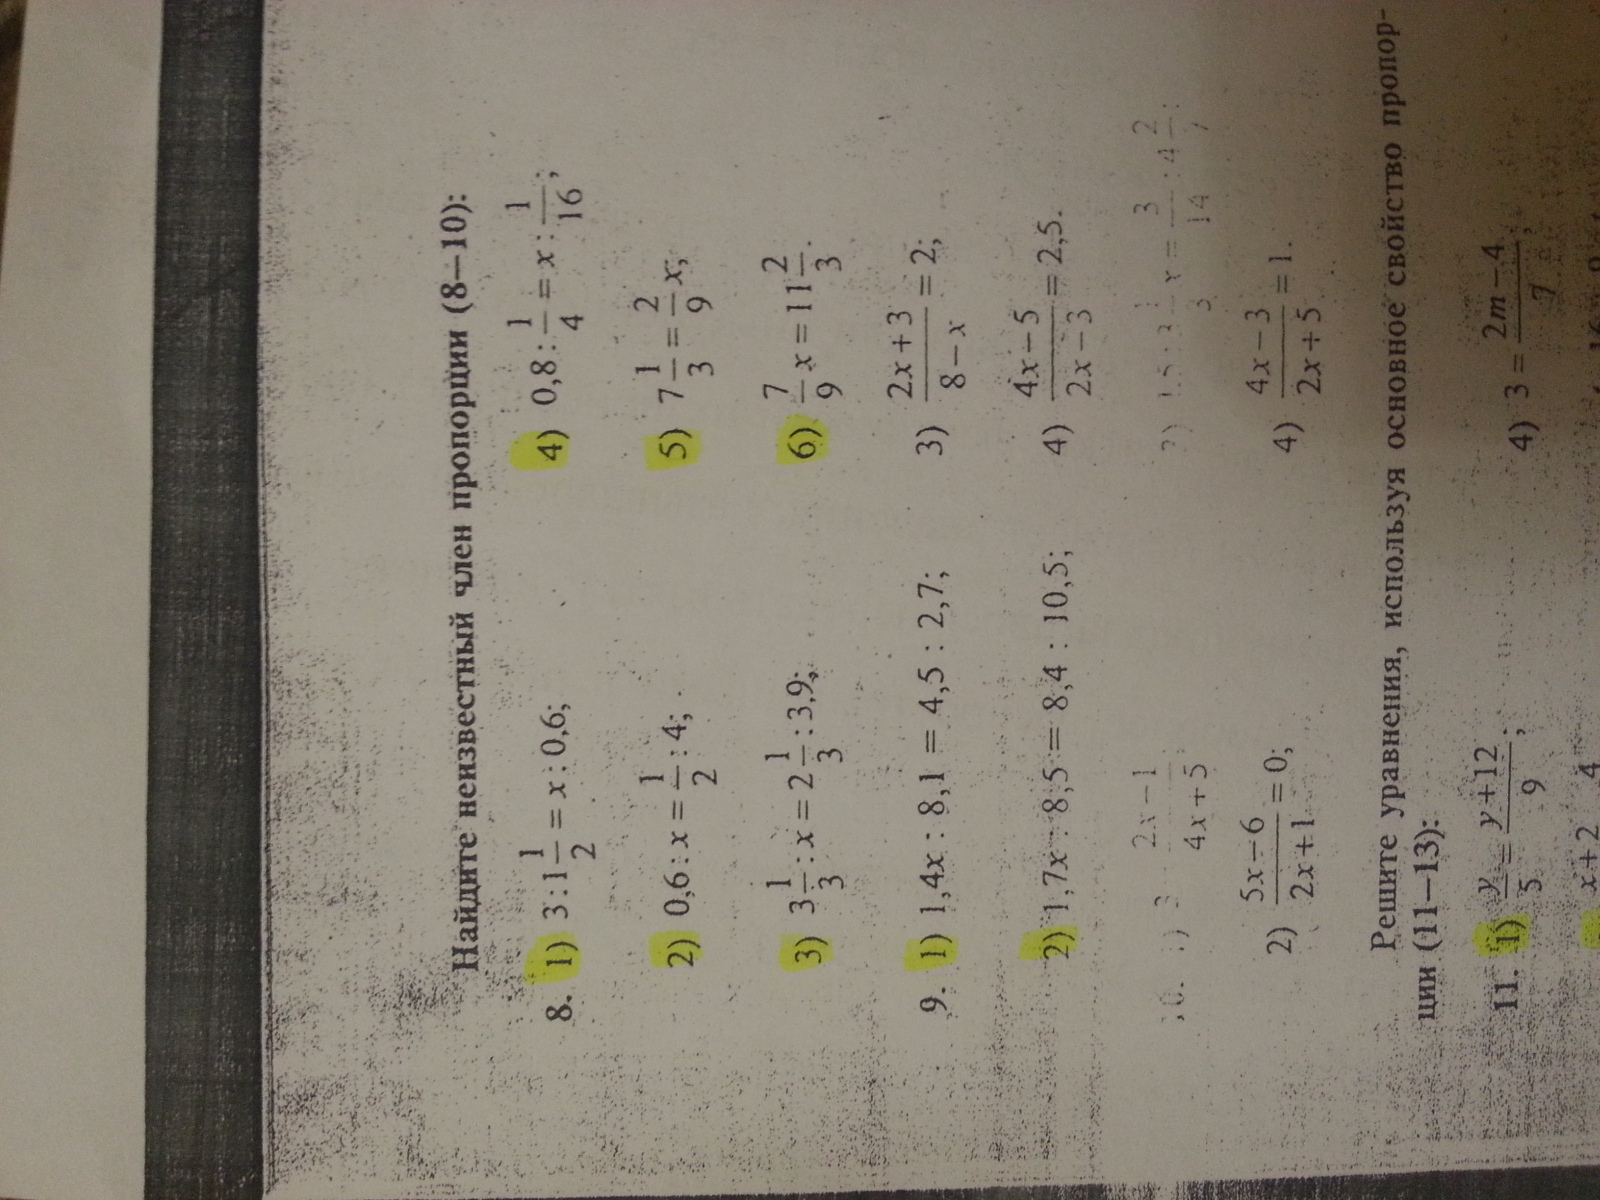 Найдите неизвестный член пропорции (8—10):
8. 1) 3 : 1 1/2 = x : 0,6; 4) 0,8 : 1/4 = x : 1/16;
2) 0,6 : x = 1/2 : 4; 5) 7 1/3 = 2/9 x;
3) 3 1/3 : x = 2 1/3 : 3,9; 6) 7/9 x = 11 2/3.
9. 1) 1,4x : 8,1 = 4,5 : 2,7; 3) (2x+3)/(8−x) = 2;
2) 1,7x : 8,5 = 8,4 : 10,5; 4) (4x−5)/(2x−3) = 2,5.
10. 1) (2x−1)/(4x+5) x = 3/14 : 4 2/7
2) (5x−6)/(2x+1) = 0; 4) (4x−3)/(2x+5) = 1.
Решите уравнения, используя основное свойство пропор-
ции (11—13):
11. 1) y/5 = (y+12)/9; 4) 3 = (2m−4)/7;
x+2 4